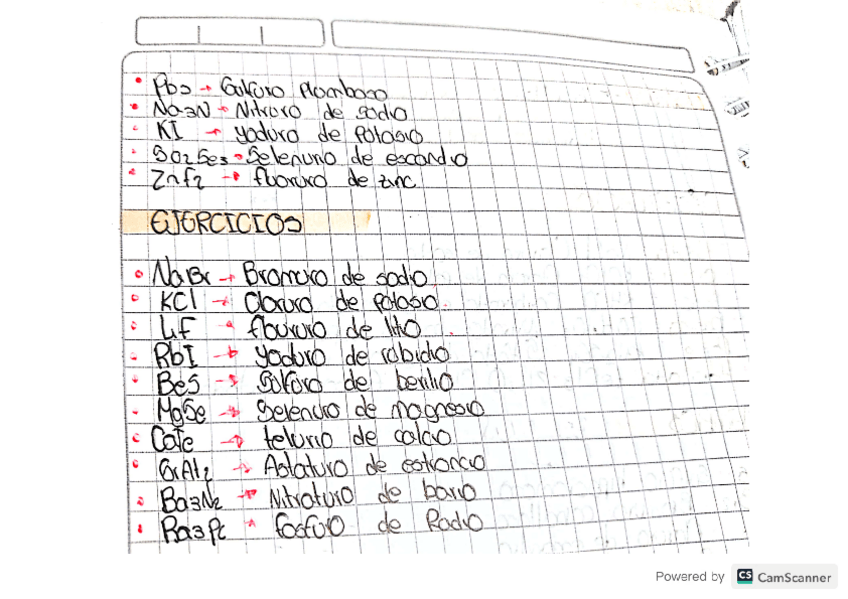 • PbS → Sulfuro Plomboso
• Na3N → Nitruro de sodio
• KI → yoduro de potasio
• Sc2Se3 • Selenuro de escandio
• ZnF2 → fluoruro de zinc
EJERCICIOS
• NaBr → Bromuro de sodio
• KCl → Cloruro de potasio
• LiF → floururo de litio
• RbI → yoduro de rubidio
• BeS → Sulfuro de berilio
• MgSe → Selenuro de magnesio
• CaTe → teluro de calcio
• SrAt2 → Astaturo de estroncio
• Ba3N2 → Nitraturo de bario
• Ra3P2 → fosfuro de Radio
Powered by CS CamScanner